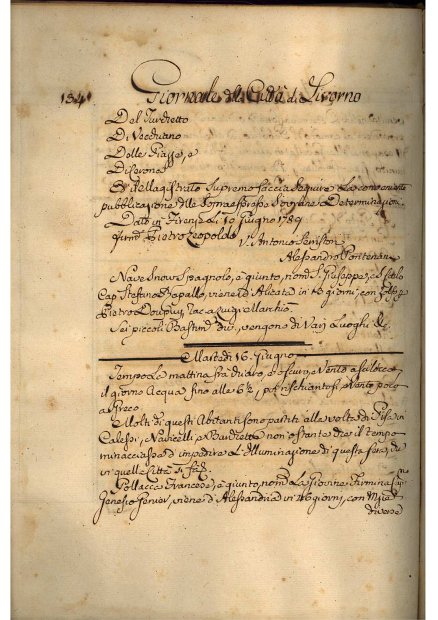 184
Giornale della Città di Livorno
Del Turchetto
Di Vecchiano
Delle Piagge, e
Di
Ed il Magistrato Supremo faccia seguire la conveniente
pubblicazione delle Sopraespresse Sovrane Determinazioni.
Dato in Firenze Li 10 Giugno 1789
Firmato Pietro Leopoldo
V. Antonio Serristori
Alessandro Pontenani
Nave Snow Spagnolo, è giunto, nomo S. Giuseppe, e S.
Cap. Stefano Rapallo, viene d'Alicate in 16 giorni, con
Pietro
Sei piccoli Bastim. div. vengono di Varj Luoghi &c.
Martedì 16. Giugno
Tempo la mattina fra chiaro, e oscuro, Vento a
il giorno Acqua fino alle 6½, poi rischiantosi, Vento poco
a Greco
Molti di questi Abitanti sono partiti alla volta di Pisa in
Calessi, Navicelli, e Barchette non ostante che il tempo
minacciasse d'impedire L'Illuminazione di questa sera, che
in quella Città si fa.
Pollacca Francese, è giunta, nomo La Giovine Firmina Cap.
Genesio viene d'Alessandria in 46 giorni, con
diverse